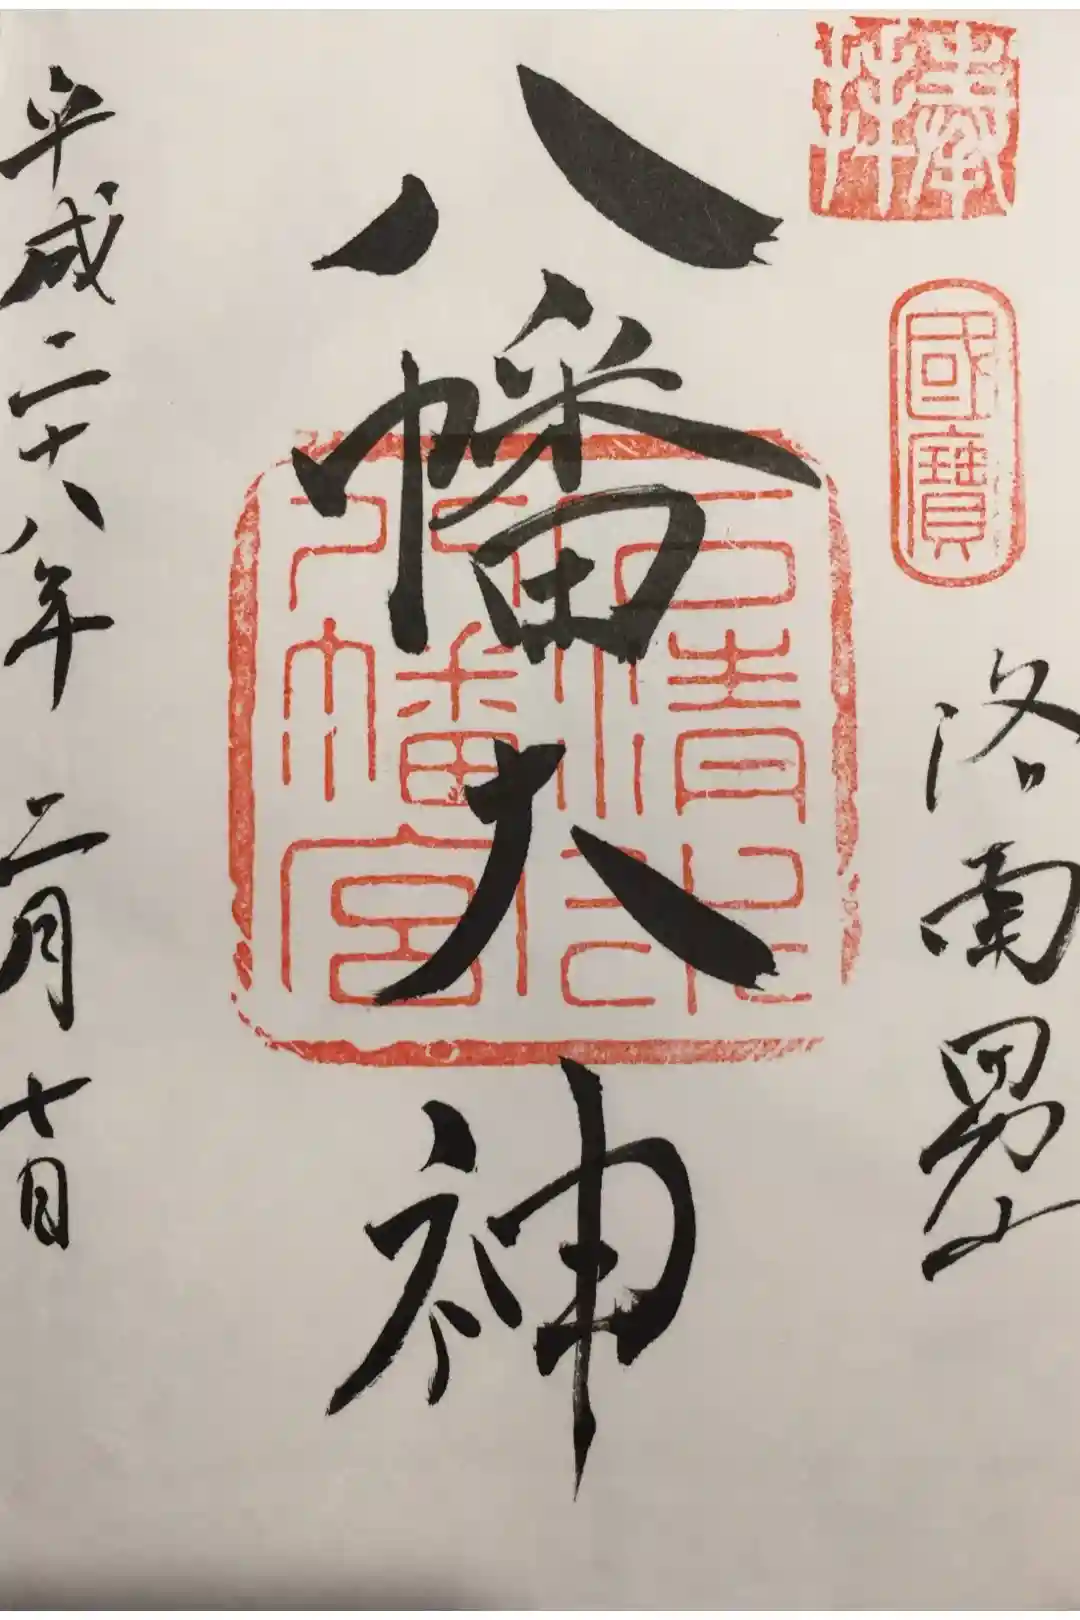 奉拝
國寶
洛南男山
八幡大神
石清水
八幡宮
平成二十八年 二月 七日